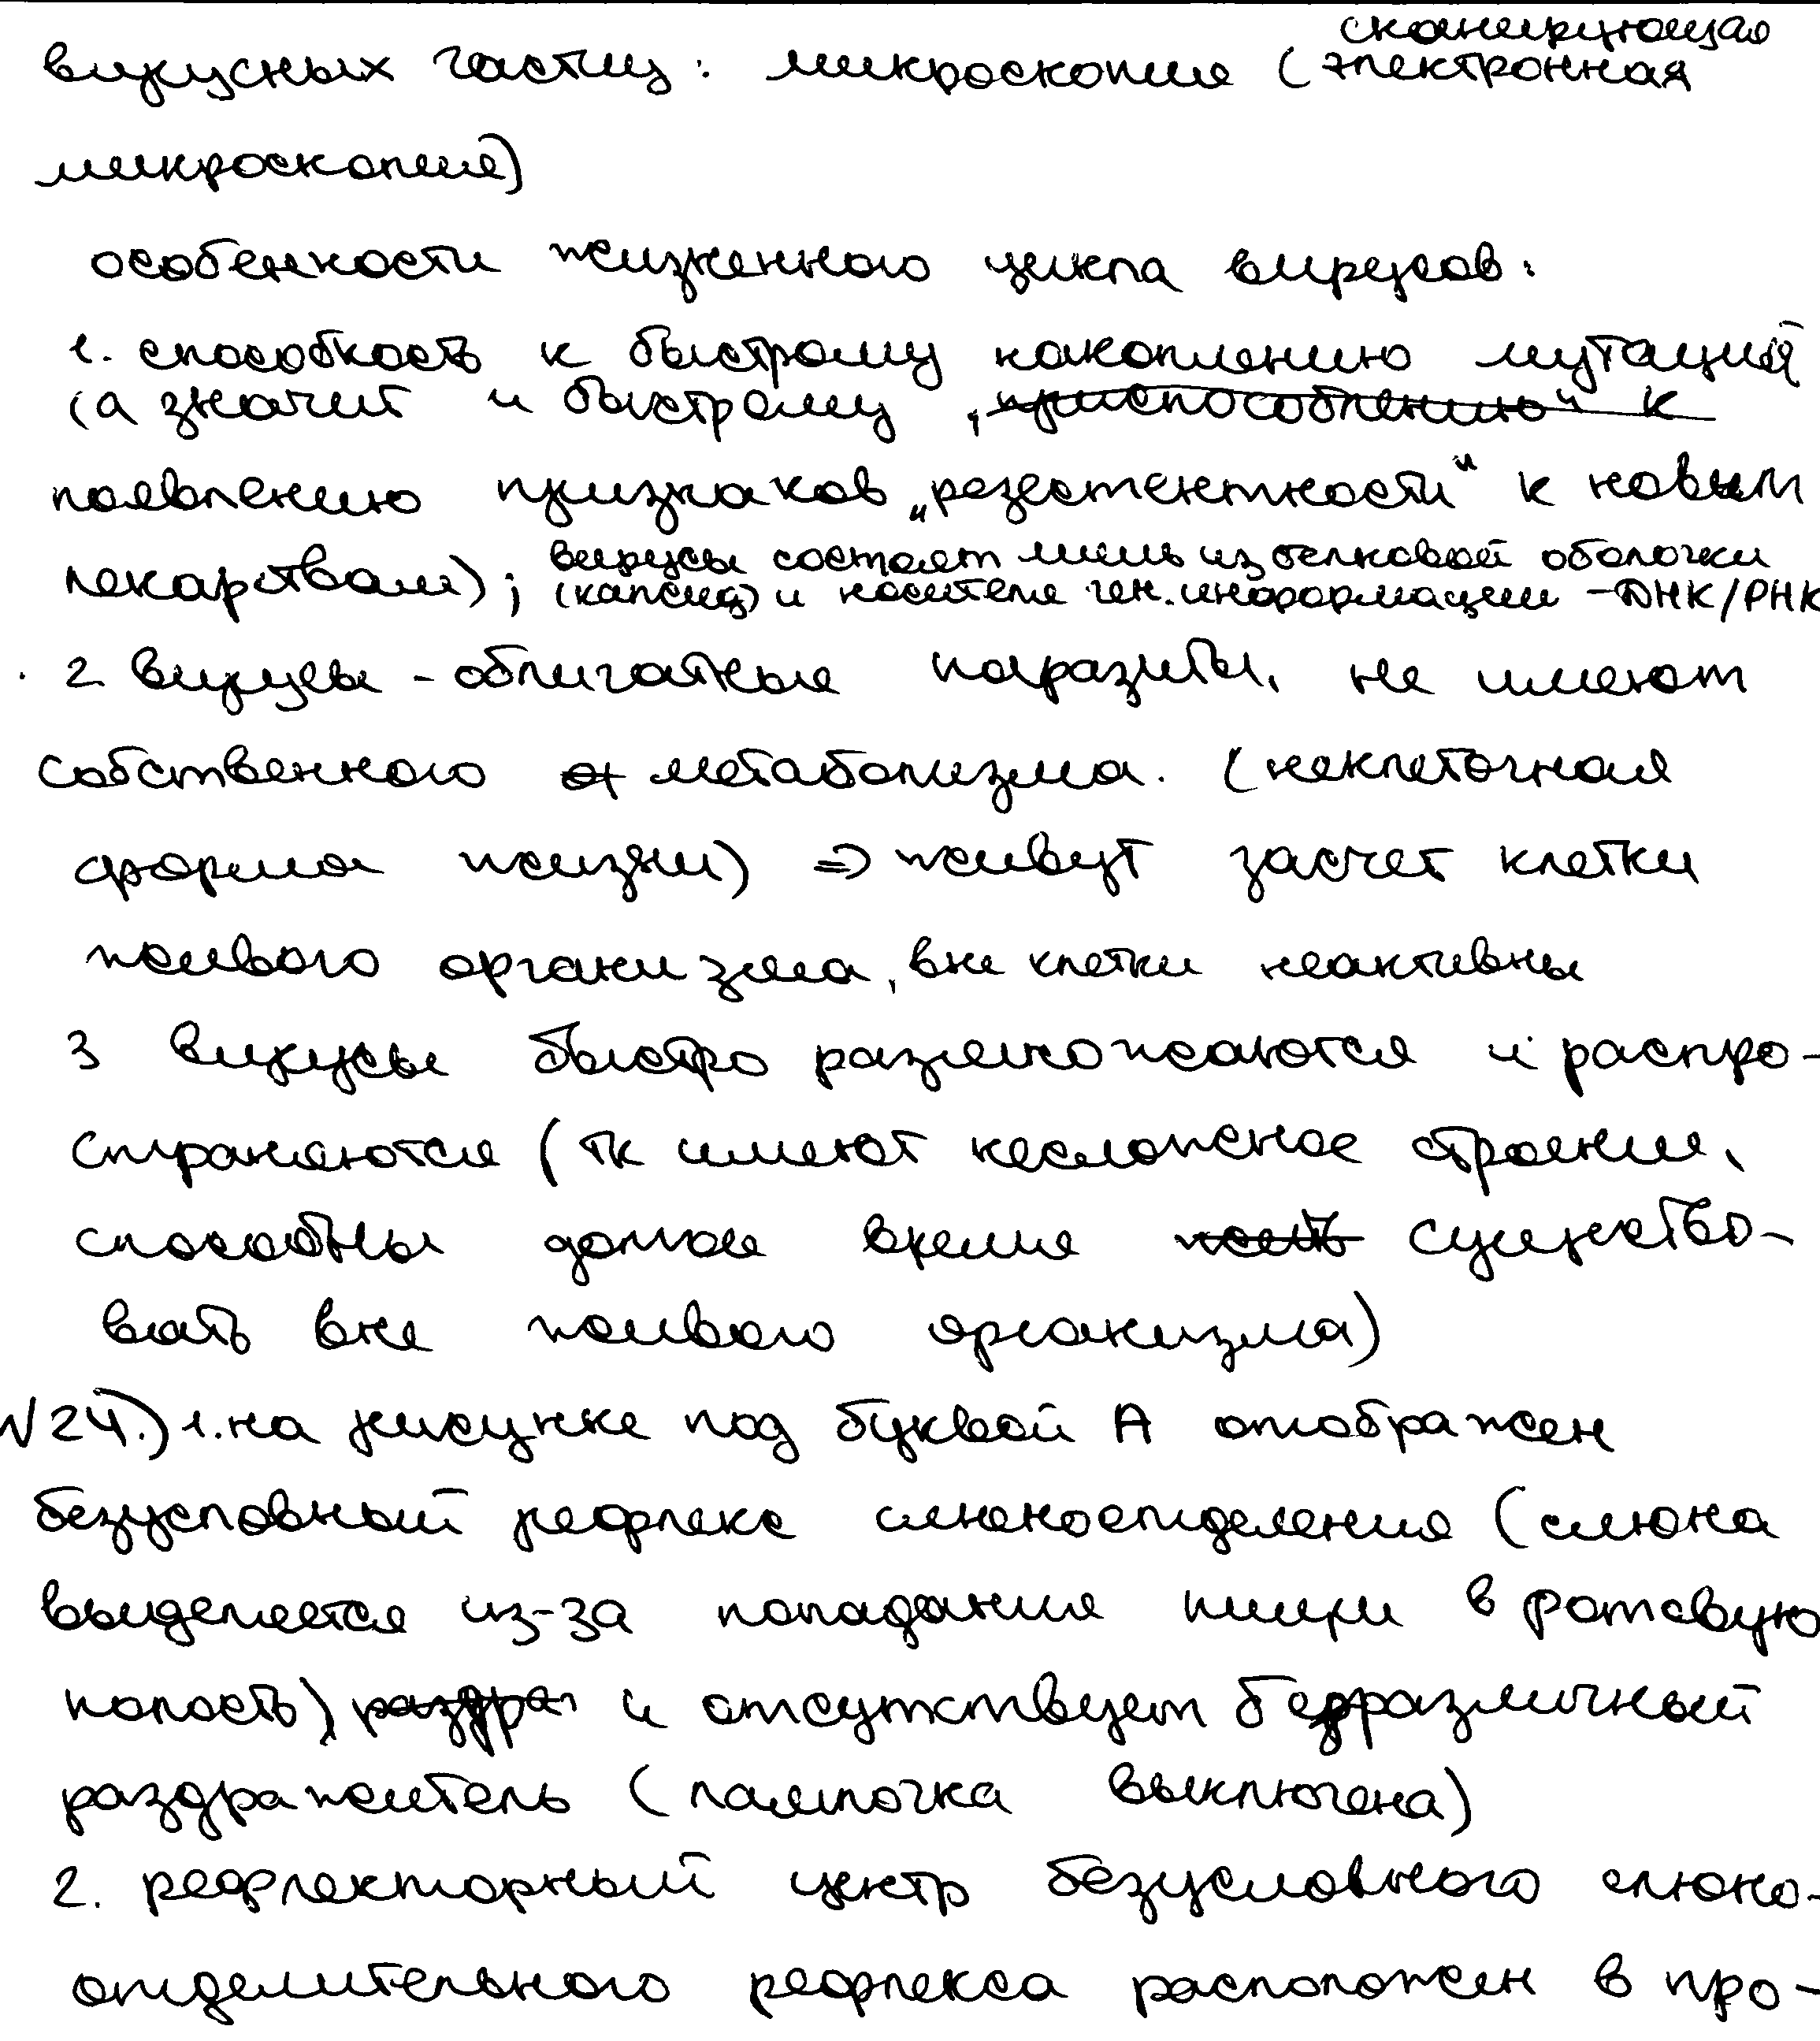 сканирующая
вирусных частиц: микроскопия (электронная
микроскопия)
особенности жизненного цикла вирусов:
1. способность к быстрому накоплению мутаций
(а значит и быстрому „приспособлению“ к
появлению признаков „резестентности“ к новым
лекарствам); вирусы состоят лишь из белковой оболочки
(капсид) и носителя ген. информации - ДНК/РНК
2 вирусы - облигатные паразиты, не имеют
собственного метаболизма. (неклеточная
форма жизни) => живут засчет клетки
живого организма, вне клетки неактивны
3 вирусы быстро размножаются и распро-
страняются (тк имеют несложное строение,
способны долгое время жить существо-
вать вне живого организма)
№24.) 1. на рисунке под буквой А отображен
безусловный рефлекс слюноотделения (слюна
выделяется из-за попадания пищи в ротовую
полость), раздраж и отсутствует безразличный
раздражитель (лампочка выключена)
2. рефлекторный центр безусловного слюно-
отделительного рефлекса расположен в про-